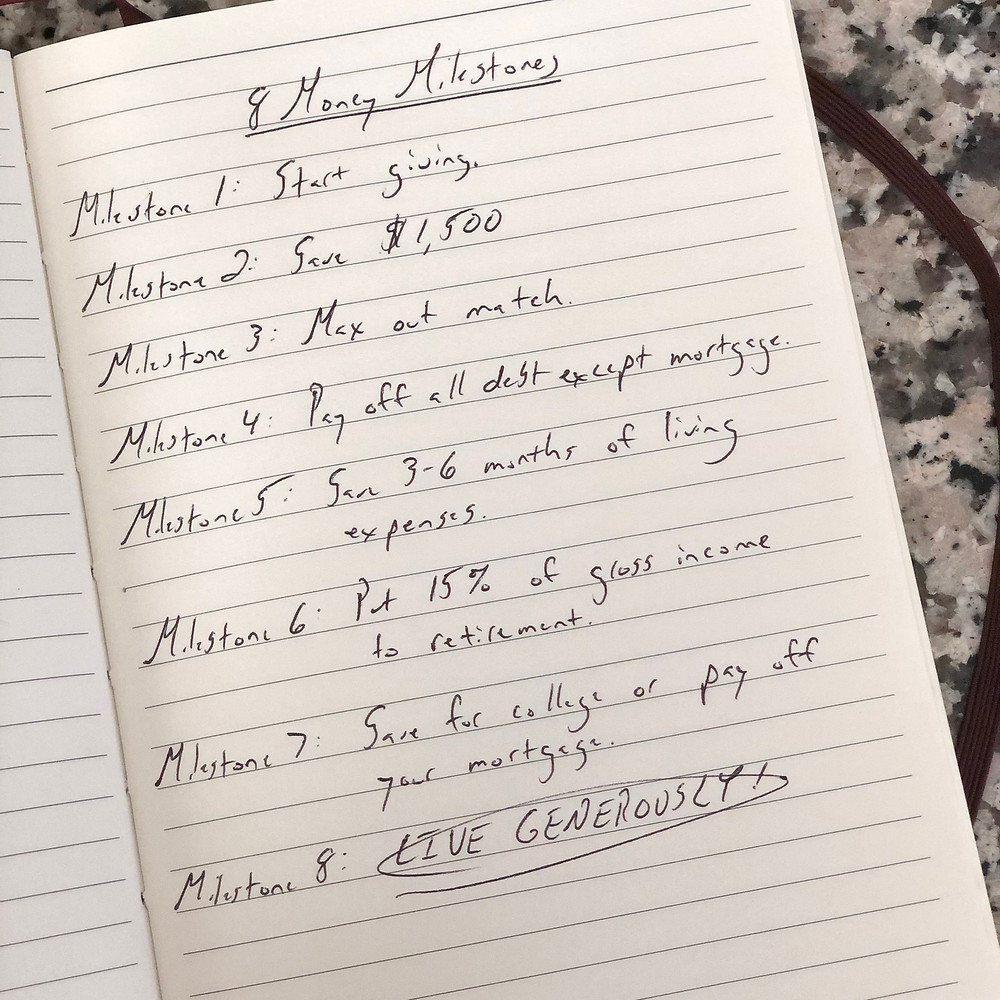 8 Money Milestones
Milestone 1: Start giving.
Milestone 2: Save $1,500
Milestone 3: Max out match.
Milestone 4: Pay off all debt except mortgage.
Milestone 5: Save 3-6 months of living
expenses.
Milestone 6: Put 15% of gross income
to retirement.
Milestone 7: Save for college or pay off
your mortgage.
Milestone 8: LIVE GENEROUSLY!